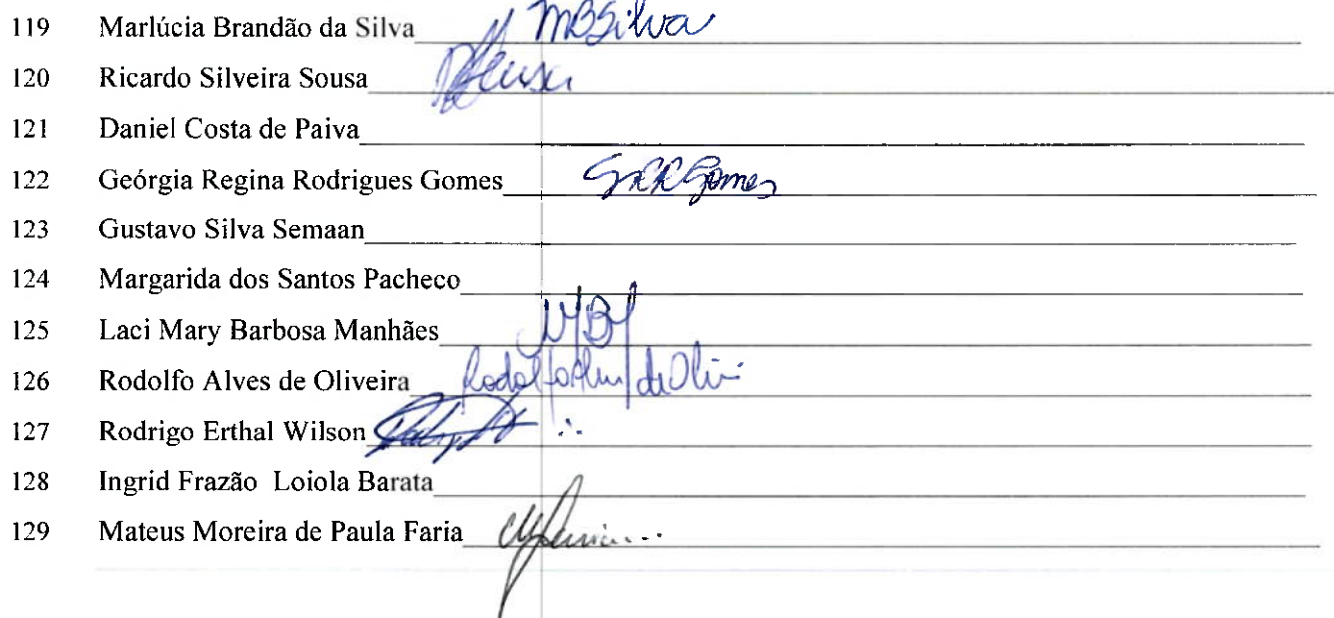 119 Marlúcia Brandão da Silva MBSilva
120 Ricardo Silveira Sousa
121 Daniel Costa de Paiva
122 Geórgia Regina Rodrigues Gomes GRRGomes
123 Gustavo Silva Semaan
124 Margarida dos Santos Pacheco
125 Laci Mary Barbosa Manhães
126 Rodolfo Alves de Oliveira
127 Rodrigo Erthal Wilson
128 Ingrid Frazão Loiola Barata
129 Mateus Moreira de Paula Faria